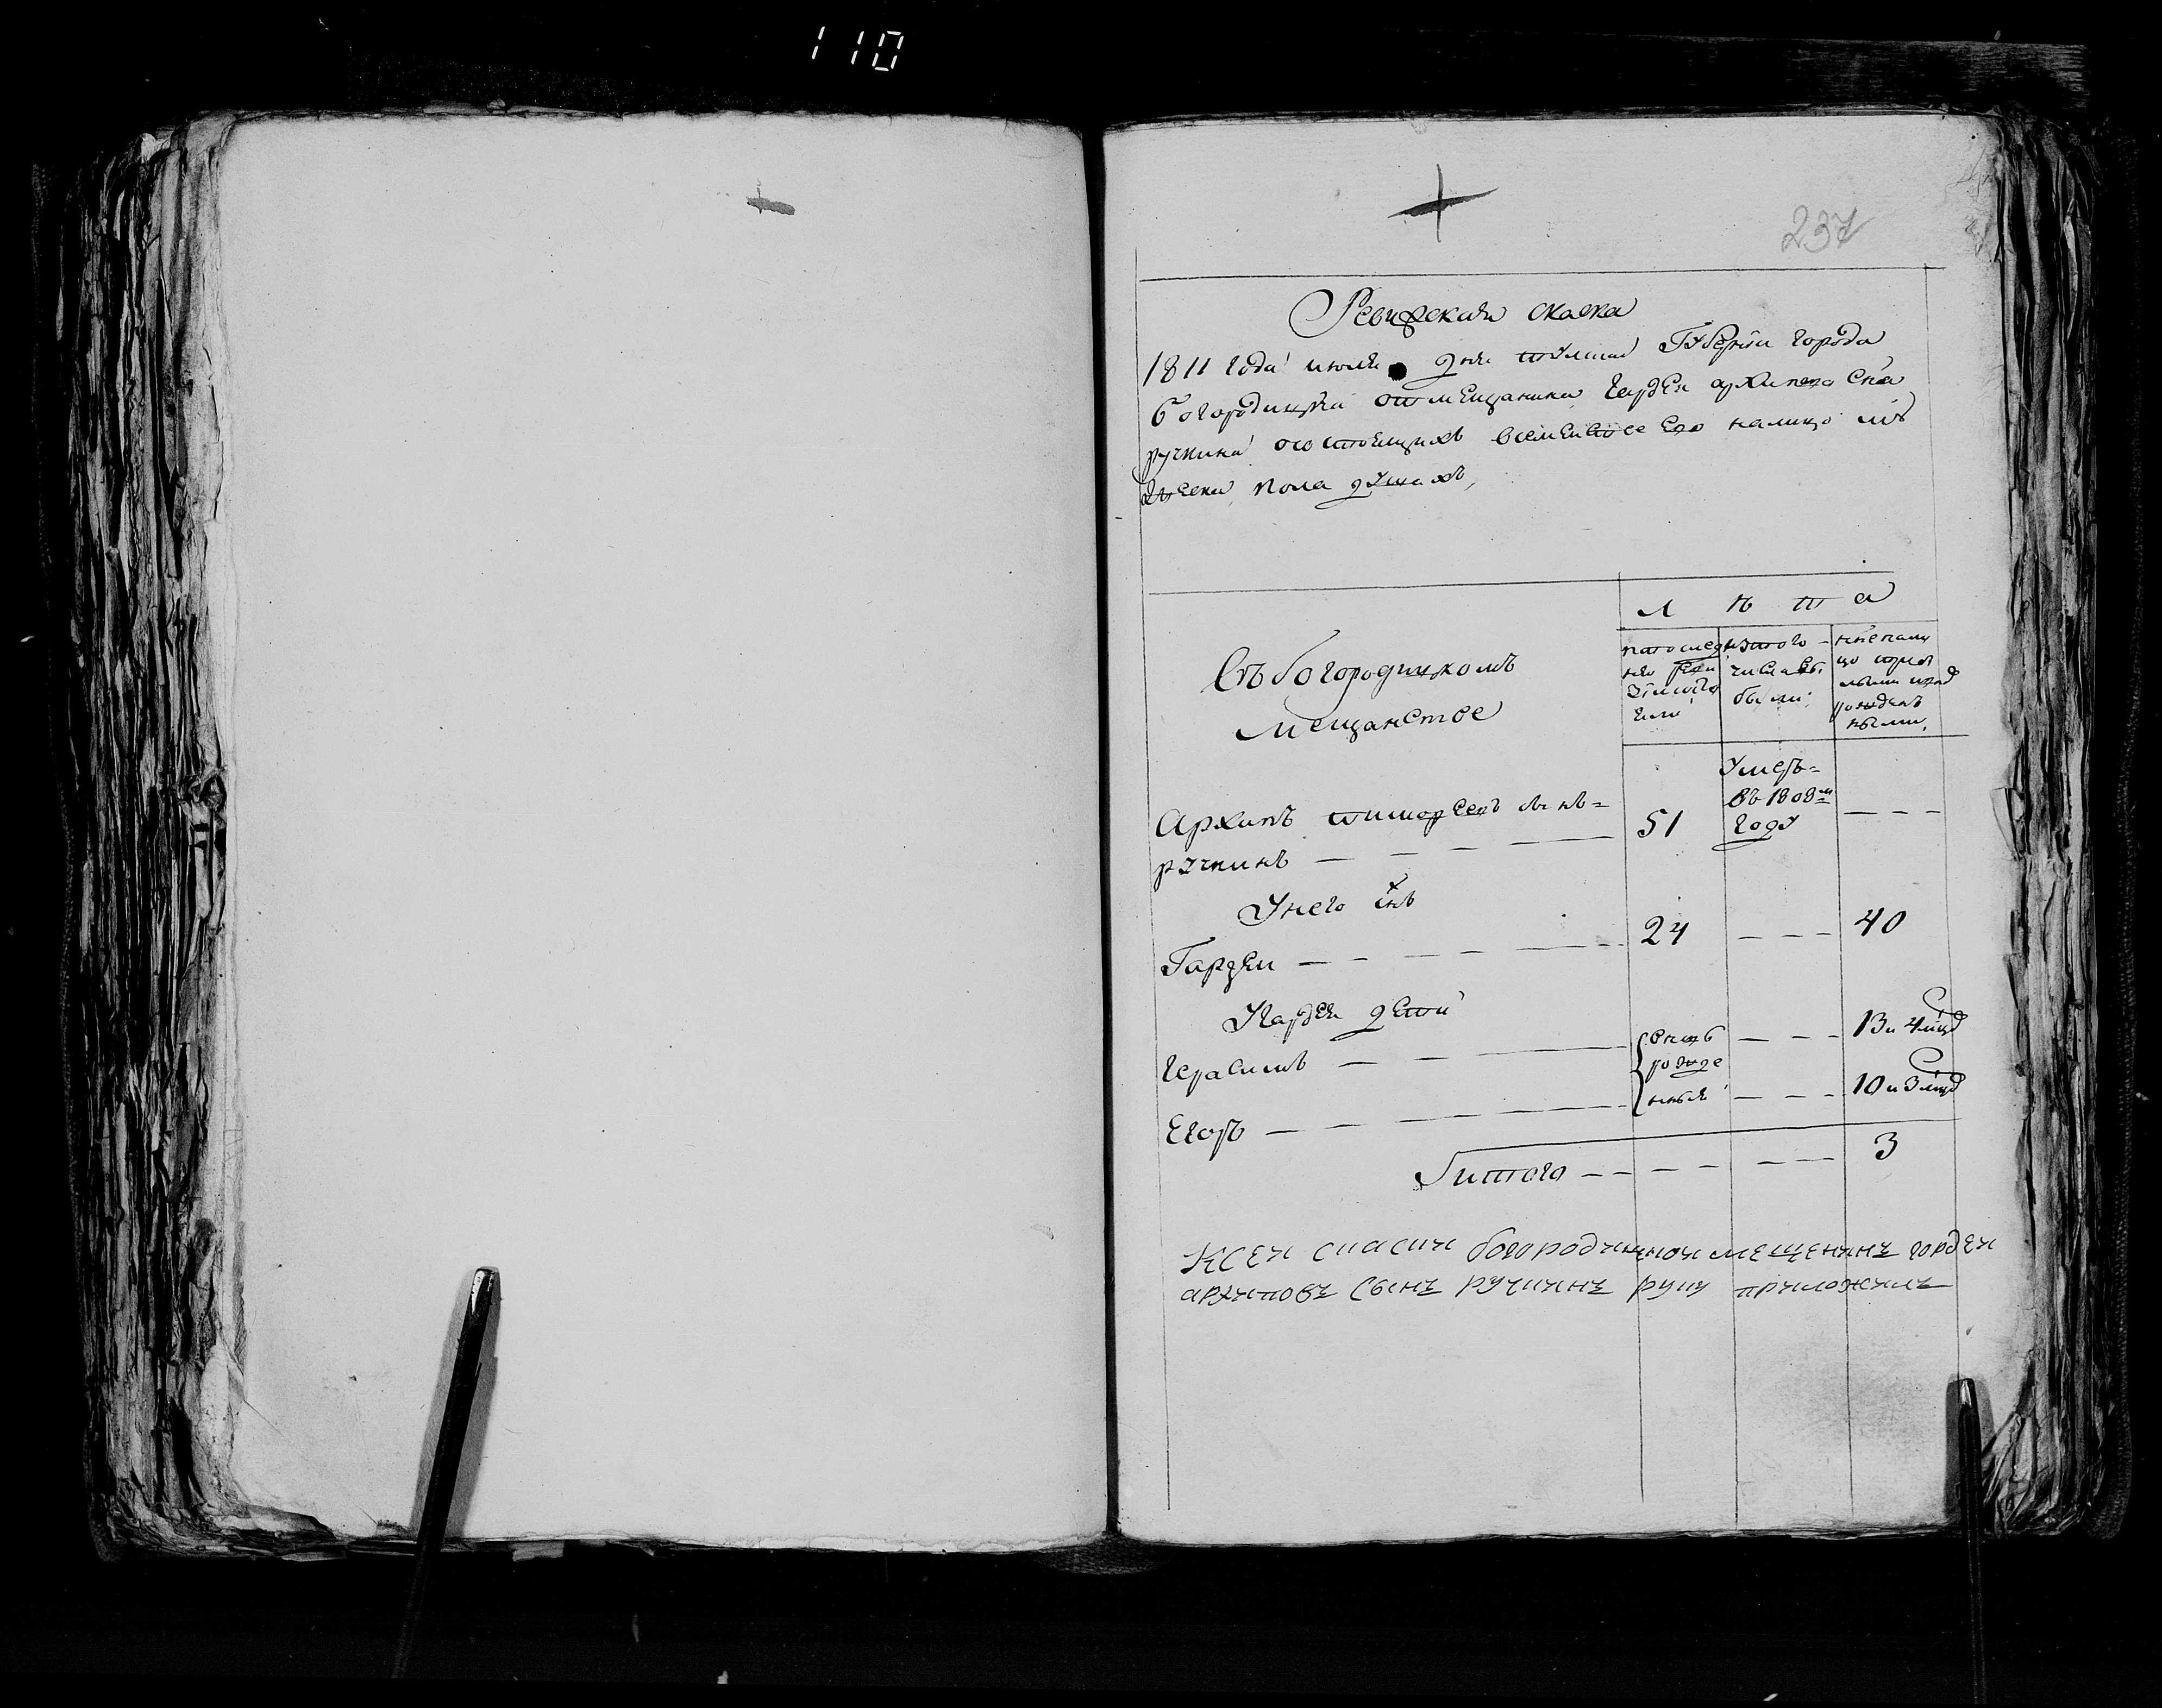 110
237
Ревизская скаска
1811 года июля дня тульской Губернии города
богородицка от мещанина гардея архипова сна
ручкина о состоящих в семействе ево налицо мъ
жеска пола душахъ,
Л ѣ т а
Въ богородицкомъ
мещанстве
по послед
ней реви
зии
были
из того
числа вы
были
ныне нали
цо
рожден
ными.
Архипъ тимофеевъ снъ
ручкинъ
51
Умеръ
въ 1808м
году
У него снъ
Гардей
24
40
У Гардея дети
Герасимъ
после
рожде
нныя
13 и 4 мцд
Егоръ
10 и 3 мцд
Итого
3
К сей сказки богородицкой мещенинъ гордей
архиповъ сынъ ручкинъ руку приложилъ